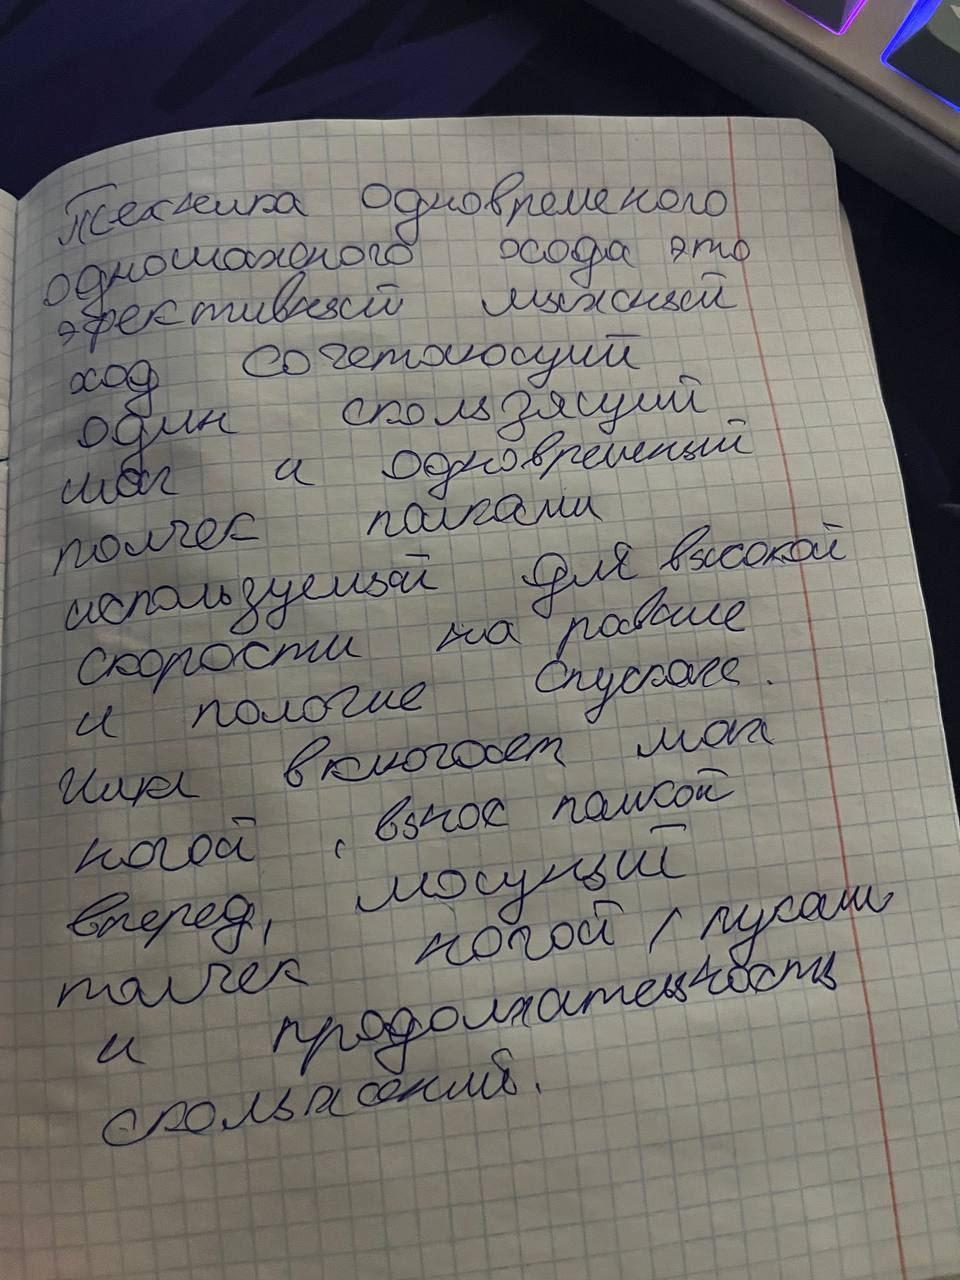 Техника одновременого
одношажного хода это
эфективный лыжный
ход сочетающий
один скользящий
шаг и одновременый
толчек палками
используемый для высокой
скорости на равние
и пологие спускаге.
Цикл включает мах
ногой, вынос палкой
вперед, мощуный
толчек ногой / руками
и продолжательность
скольжений.